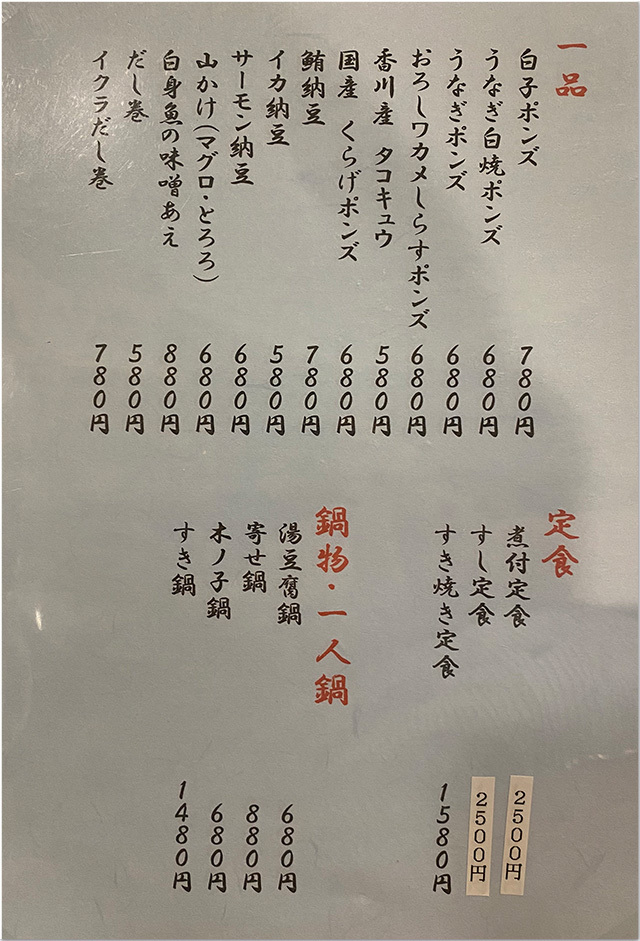 一品
白子ポンズ 780円
うなぎ白焼ポンズ 680円
うなぎポンズ 680円
おろしワカメしらすポンズ 680円
香川産 タコキュウ 580円
国産 くらげポンズ 680円
鮪納豆 780円
イカ納豆 580円
サーモン納豆 680円
山かけ(マグロ・とろろ) 680円
白身魚の味噌あえ 880円
だし巻 580円
イクラだし巻 780円
定食
煮付定食 2500円
すし定食 2500円
すき焼き定食 1580円
鍋物・一人鍋
湯豆腐鍋 680円
寄せ鍋 880円
木ノ子鍋 680円
すき鍋 1480円